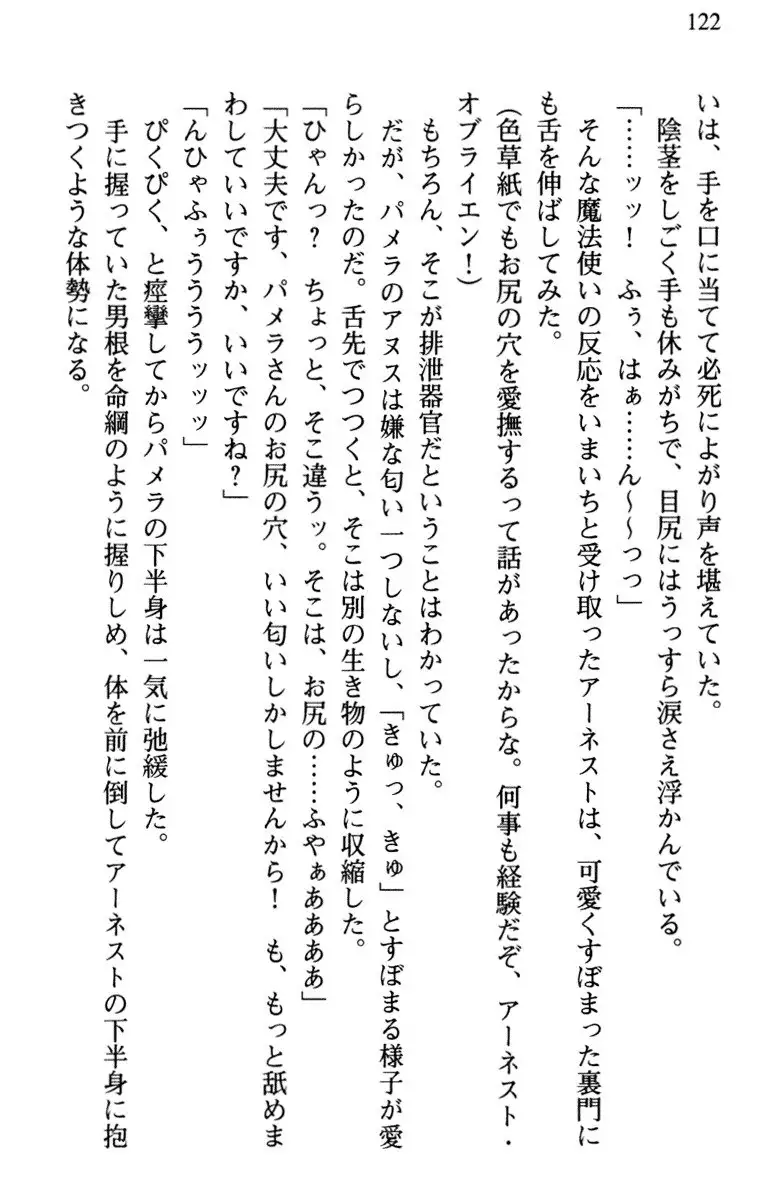 122
いは、手を口に当てて必死によがり声を堪えていた。
陰茎をしごく手も休みがちで、目尻にはうっすら涙さえ浮かんでいる。
「……ッッ！　ふぅ、はぁ……ん～～っっ」
そんな魔法使いの反応をいまいちと受け取ったアーネストは、可愛くすぼまった裏門に
も舌を伸ばしてみた。
(色草紙でもお尻の穴を愛撫するって話があったからな。何事も経験だぞ、アーネスト・
オブライエン！)
もちろん、そこが排泄器官だということはわかっていた。
だが、パメラのアヌスは嫌な匂い一つしないし、「きゅっ、きゅ」とすぼまる様子が愛
らしかったのだ。舌先でつつくと、そこは別の生き物のように収縮した。
「ひゃんっ？　ちょっと、そこ違うッ。そこは、お尻の……ふやぁあああぁ」
「大丈夫です、パメラさんのお尻の穴、いい匂いしかしませんから！　も、もっと舐めま
わしていいですか、いいですね？」
「んひゃふぅうううッッッ」
ぴくぴく、と痙攣してからパメラの下半身は一気に弛緩した。
手に握っていた男根を命綱のように握りしめ、体を前に倒してアーネストの下半身に抱
きつくような体勢になる。